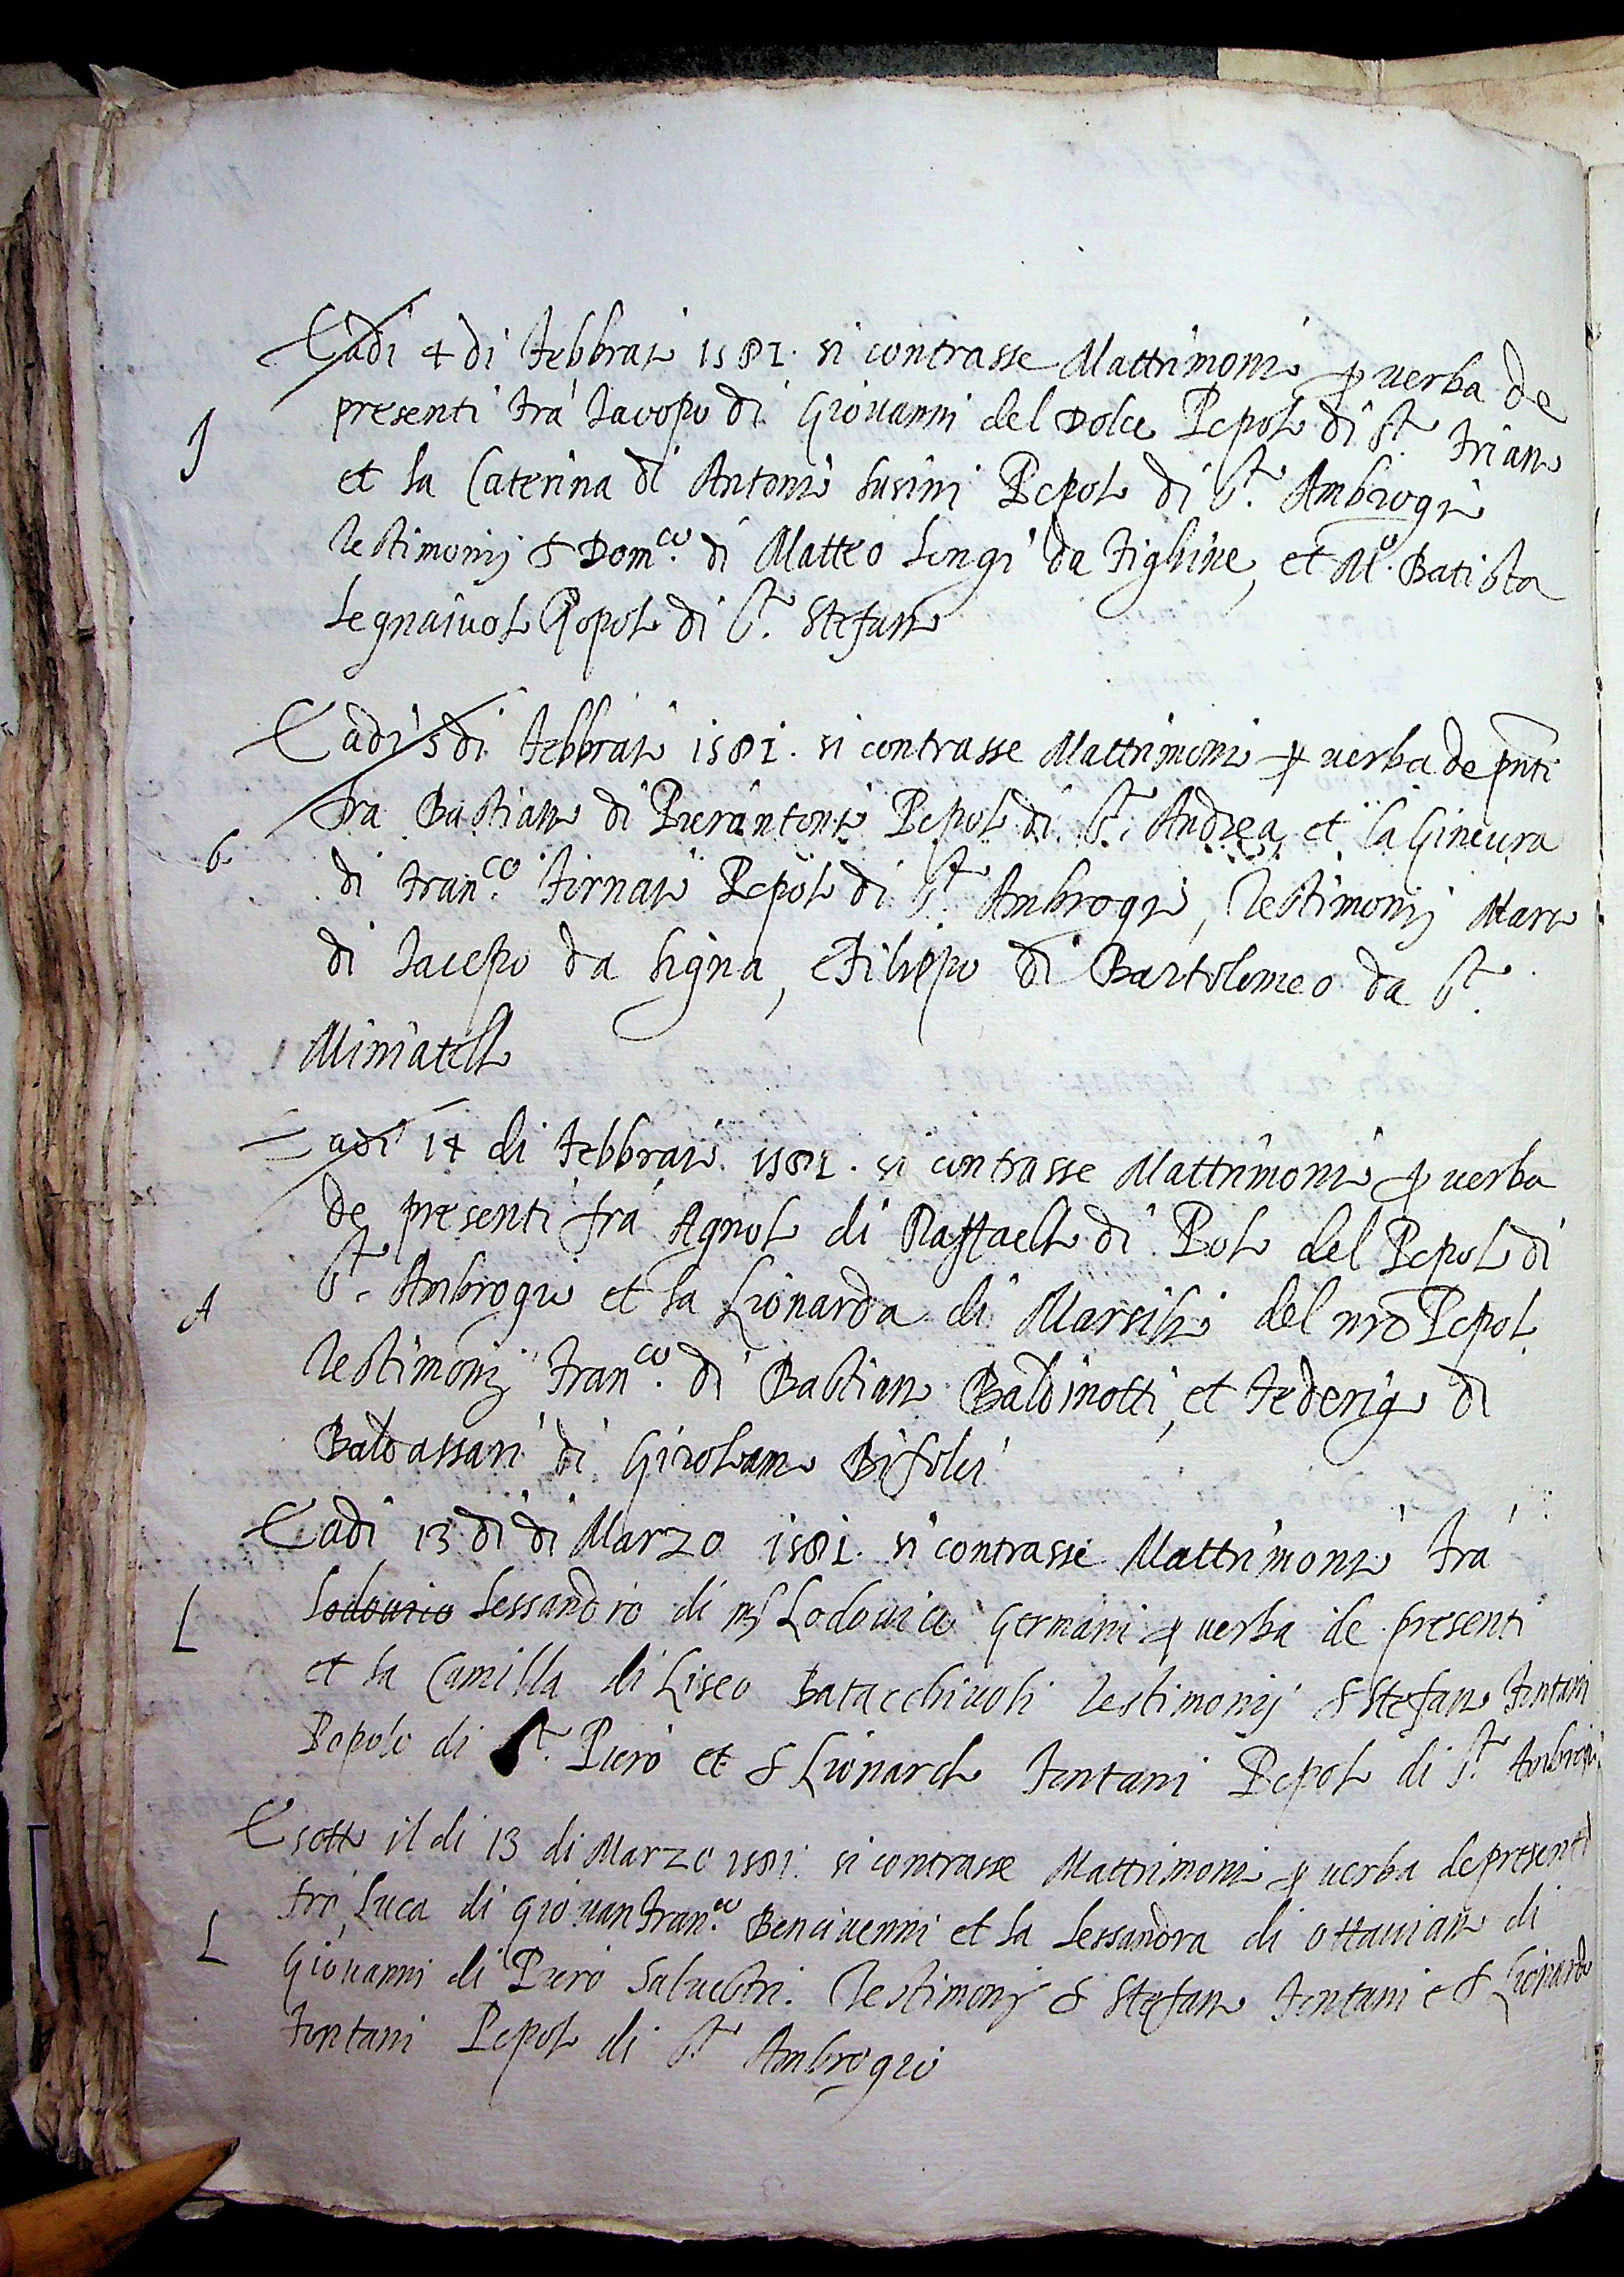 E adi 4 di febbraio 1581. si contrasse Mattrimonio p verba de
J
presenti fra Iacopo di Giovanni del Dolce Popolo di S.to Friano
et la Caterina di Antonio Susini Popolo di S.to Ambrogio
Testimonij S Dom.co di Matteo Longi da Fighine, et M.o Batista
legnaiuolo Popolo di S.to Stefano
E adi 5 di febbraio 1581. si contrasse Mattrimonio p verba de pnti
fra Bastiano di Pierantonio Popolo di S.to Andrea, et la Gineura
b.
di Fran.co Fornaio Popolo di S.to Ambrogio, Testimonij Marco
di Iacopo da Signa, e Filippo di Bartolomeo da S.to
Miniatello
E adi 14 di febbraio 1581. si contrasse Mattrimonio p verba
de presenti fra Agnolo di Raffaello di Polo del Popolo di
A
S.to Ambrogio et la Lionarda di Marsilio del nro Popolo
Testimonij Fran.co di Bastiano Baldinotti, et Federigo di
Baldassari di Girolamo Bifolci
E adi 13 di di Marzo 1581. si contrasse Mattrimonio fra
L
Lodovico Lessandro di ms Lodovico Germani p verba de presenti
et la Camilla di Liseo Batacchivoli Testimonij S Stefano Fontani
Popolo di S.to Piero et S Lionardo Fontani Popolo di S.to Ambrogio
E sotto il di 13 di Marzo 1581. si contrasse Mattrimonio p verba de presenti
fra Luca di giovanfran.co Bencivenni et la Lessandra di Ottaviano di
L
Giovanni di Piero Salvestri. Testimonij S Stefano Fontani e S Lionardo
Fontani Popolo di S.to Ambrogio